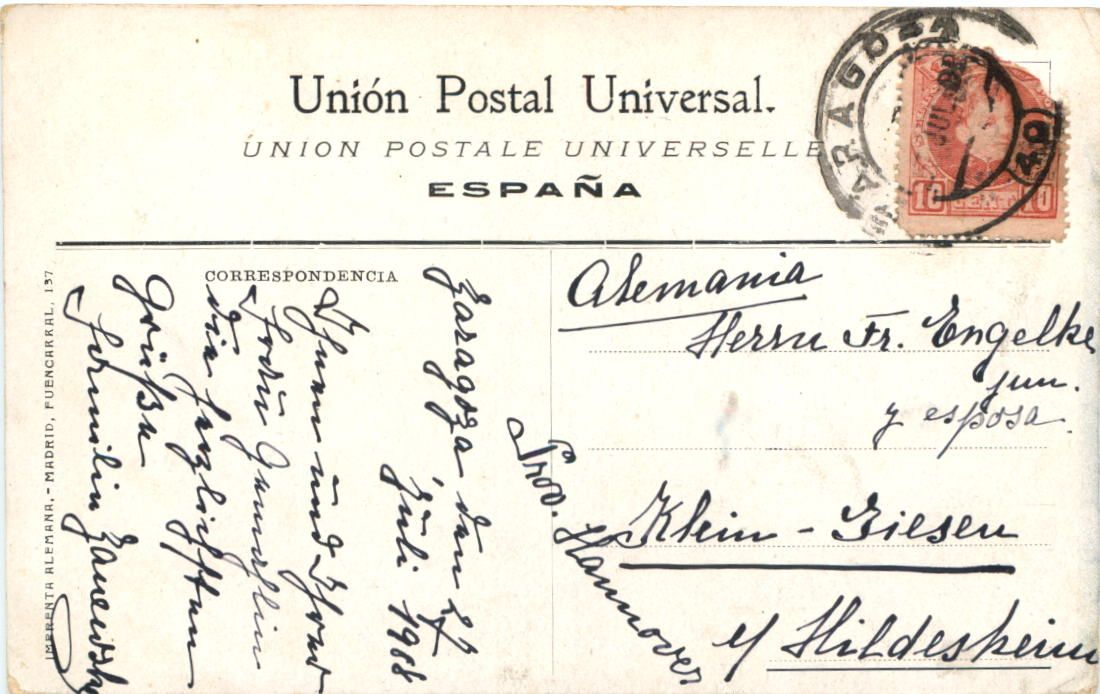 Unión Postal Universal.
UNION POSTALE UNIVERSELLE
ESPAÑA
ZARAGOZA
JUL
10 CENT 10
CORRESPONDENCIA
IMPRENTA ALEMANA. - MADRID, FUENCARRAL, 137
Zaragoza den
Juli 1908
Ihnen und Ihrer
Frau Gemahlin
die herzlichsten
Grüße
Familie
Alemania
Herrn Fr. Engelke
jun.
y esposa.
Klein - Giesen
Hildesheim
Prov. Hannover